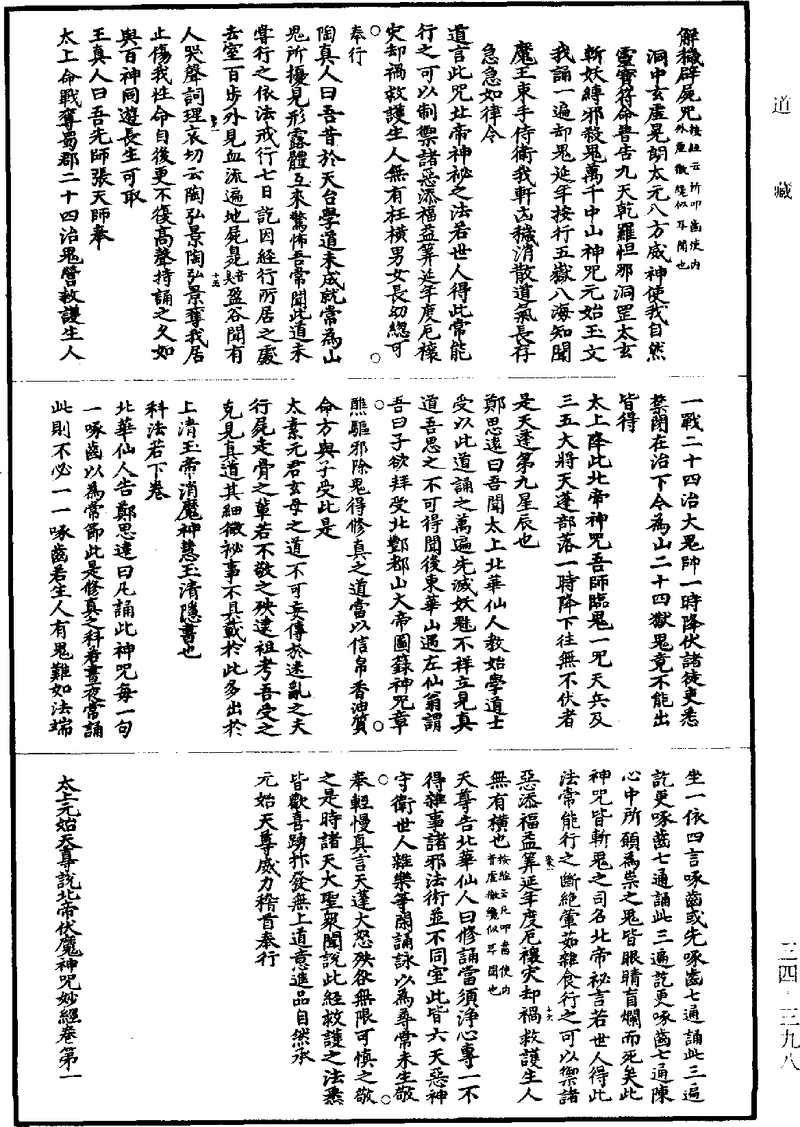 道藏
解穢辟屍咒按經云所叩齒使內外虛徹纔似耳聞也
洞中玄虛晃朗太元八方威神使我自然
靈寶符命普告九天乾羅怛那洞罡太玄
斬妖縛邪殺鬼萬千中山神咒元始玉文
我誦一遍却鬼延年按行五嶽八海知聞
魔王束手侍衛我軒凶穢消散道氣長存
急急如律令
道言此咒北帝神祕之法若世人得此常能
行之可以制禦諸惡添福益筭延年度厄禳
灾却禍救護生人無有枉橫男女長幼緫可
奉行
陶真人曰吾昔於天台學道未成就常為山
鬼所擾見形露體互來驚怖吾常聞此道未
甞行之依法戒行七日訖因經行所居之處
去室一百步外見血流遍地屍臭盈谷聞有
人哭聲詞理哀切云陶弘景陶弘景奪我居
止傷我性命自後更不復高聲持誦之久如
與百神同遊長生可取
王真人曰吾先師張天師奉
太上命戰奪蜀郡二十四治鬼營救護生人
一戰二十四治大鬼帥一時降伏諸徒吏悉
禁閉在治下今為山二十四獄鬼竟不能出
皆得
太上降此北帝神咒吾師臨鬼一咒天兵及
三五大將天蓬部落一時降下往無不伏者
是天蓬第九星辰也
鄭思遠曰吾聞太上北華仙人教始學道士
受以此道誦之萬遍先滅妖魅不祥立見真
道吾思之不可得聞後東華山遇左仙翁謂
吾曰子欲拜受北酆都山大帝圖籙神咒章
醮驅邪除鬼得修真之道當以信帛香油質
命方與子受此是
太素元君玄母之道不可妄傳於迷亂之夫
行屍走骨之軰若不敬之殃逮祖考吾受之
克見真道其細微祕事不具載於此多出於
上清玉帝消魔神慧玉清隱書也
科法若下卷
北華仙人告鄭思遠曰凡誦此神咒每一句
一啄齒以為常節此是修真之科若晝夜常誦
此則不必一一啄齒若生人有鬼難如法端
坐一依四言啄齒或先啄齒七通誦此三遍
訖更啄齒七通誦此三遍訖更啄齒七通陳
心中所願為祟之鬼皆眼睛盲爛而死矣此
神咒皆斬鬼之司名北帝祕言若世人得此
法常能行之斷絕葷茹雜食行之可以禦諸
惡添福益筭延年度厄禳灾却禍救護生人
無有橫也按經云凡叩齒使內音虛徹纔似耳聞也
天尊告北華仙人曰修誦當須淨心專一不
得雜事諸邪法術並不同室此皆六天惡神
守衛世人雜樂等閑誦詠以為尋常未生敬
奉輕慢真言天蓬大怒殃欲無限可慎之敬
之是時諸天大聖衆聞說此經救護之法悉
皆歡喜踴抃發無上道意進品自然承
元始天尊威力稽首奉行
太上元始天尊說北帝伏魔神咒妙經卷第一
三四・三九八